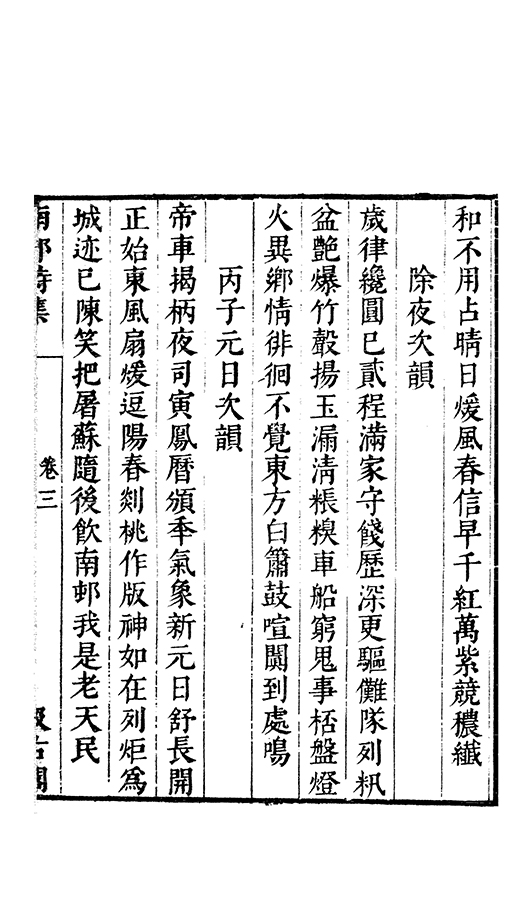 和不用占晴日煖風春信早千紅萬紫競穠纖
除夜次韻
歲律纔圓已貳程滿家守餞歷深更驅儺隊列籸
盆艷爆竹聲揚玉漏淸粻糗車船窮鬼事桮盤燈
火異鄉情徘徊不覺東方白簫鼓喧闐到處鳴
丙子元日次韻
帝車揭柄夜司寅鳳曆頒秊氣象新元日舒長開
正始東風扇煖逗陽春剡桃作版神如在列炬爲
城迹已陳笑把屠蘇隨後飮南邨我是老天民
南邨詩集
卷三
汲古閣